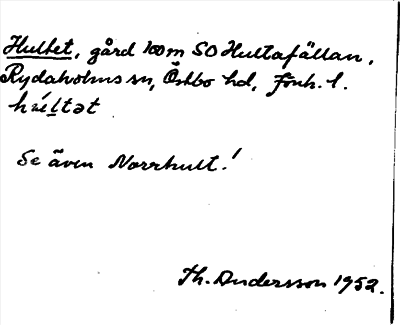 Hultet, gård 100 m SO Hultafällan,
Rydaholms sn, Östbo hd, Jönk. l.
hu̇ltət
Se även Norrhult!
Th. Andersson 1952.